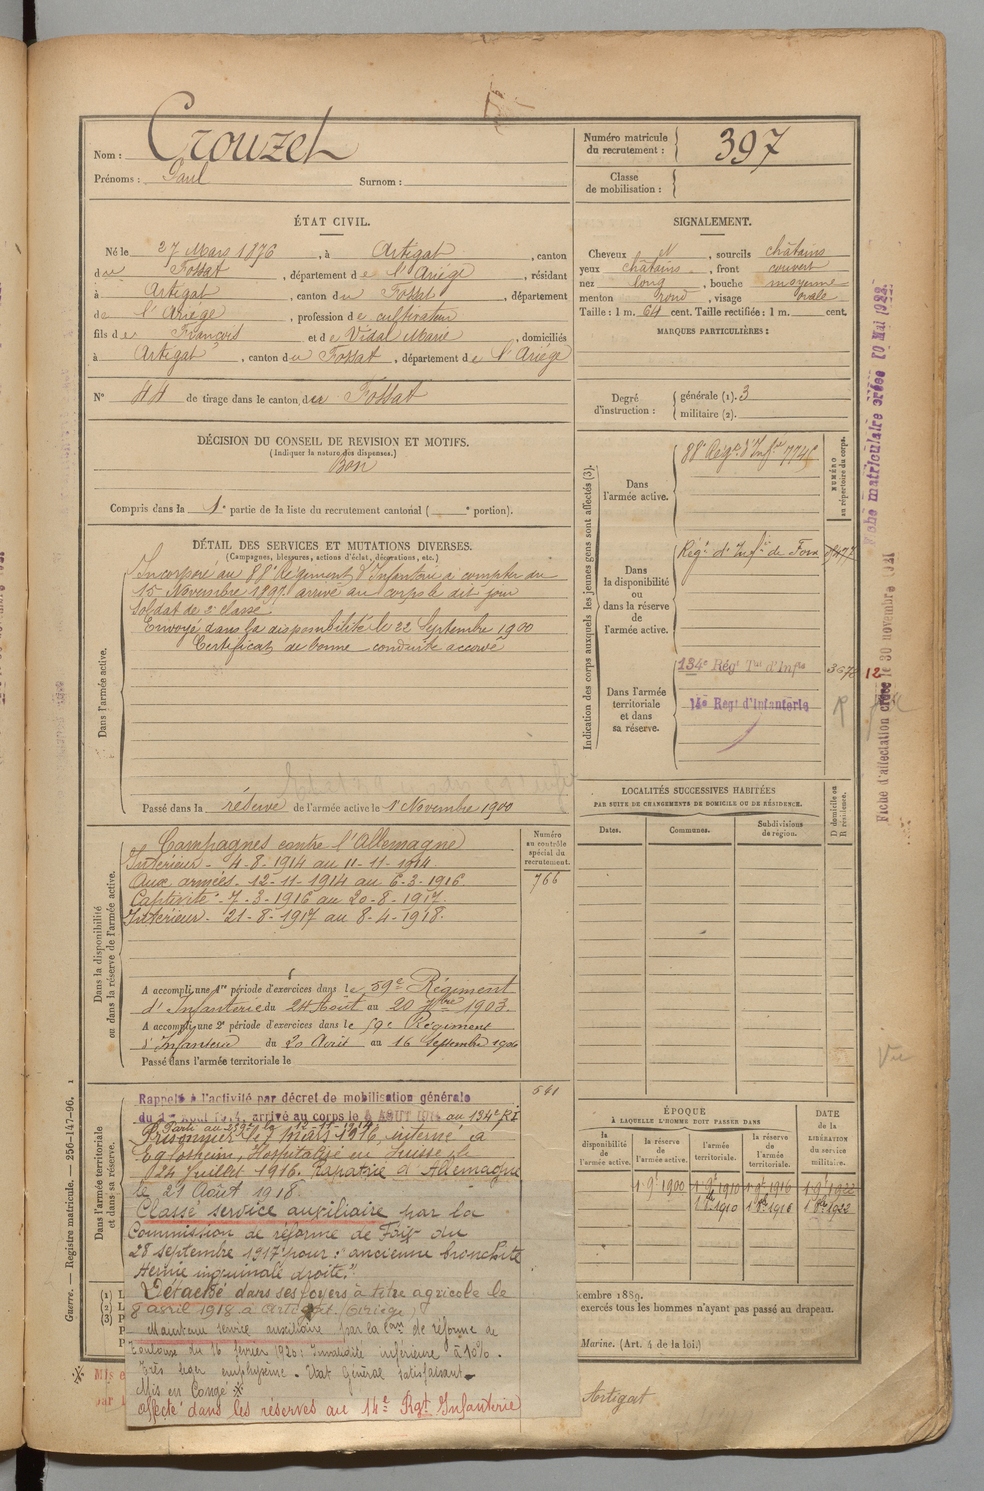 Nom : Crouzet
Prénoms : Paul Surnom :
Numéro matricule du recrutement : 397
Classe de mobilisation :
ÉTAT CIVIL.
Né le 27 Mars 1876, à Artigat, canton
du Fossat, département de l'Ariège, résidant
à Artigat, canton du Fossat, département
de l'Ariège, profession de cultivateur
fils de François et de Vidal Marie, domiciliés
à Artigat, canton du Fossat, département de l'Ariège
N° 44 de tirage dans le canton du Fossat
SIGNALEMENT.
Cheveux et, sourcils châtains
yeux châtains, front couvert
nez long, bouche moyenne
menton rond, visage ovale
Taille : 1 m. 64 cent. Taille rectifiée : 1 m. cent.
MARQUES PARTICULIÈRES :
Degré d'instruction : générale (1). 3
militaire (2).
DÉCISION DU CONSEIL DE REVISION ET MOTIFS.
(Indiquer la nature des dispenses.)
Bon
Compris dans la 1e partie de la liste du recrutement cantonal ( e portion).
DÉTAIL DES SERVICES ET MUTATIONS DIVERSES.
(Campagnes, blessures, actions d'éclat, décorations, etc.)
Dans l'armée active.
Incorporé au 88e Régiment d'Infanterie à compter du
15 Novembre 1897 arrivé au corps le dit jour
Soldat de 2e classe.
Envoyé dans la disponibilité le 22 Septembre 1900
Certificat de bonne conduite accordé
Passé dans la réserve de l'armée active le 1er Novembre 1900
Indication des corps auxquels les jeunes gens sont affectés (3).
NUMÉRO au répertoire du corps.
Dans l'armée active.
88e Régt d'Infie 7746
Dans la disponibilité ou dans la réserve de l'armée active.
Régt d'Infie de Foix
Dans l'armée territoriale et dans sa réserve.
134e Régt Tal d'Infie
14e Régt d'Infanterie
12
LOCALITÉS SUCCESSIVES HABITÉES
PAR SUITE DE CHANGEMENTS DE DOMICILE OU DE RÉSIDENCE.
Dates. Communes. Subdivisions de région.
D domicile ou R résidence.
Dans la disponibilité ou dans la réserve de l'armée active.
Numéro au contrôle spécial du recrutement.
766
Campagnes contre l'Allemagne
Intérieur - 4-8-1914 au 11-11-1914.
Aux armées - 12-11-1914 au 6-3-1916
Captivité - 7-3-1916 au 20-8-1917.
Intérieur - 21-8-1917 au 8-4-1918.
A accompli une 1re période d'exercices dans le 59e Régiment
d'Infanterie du 24 Août au 20 7bre 1903.
A accompli une 2e période d'exercices dans le 59e Régiment
d'Infanterie du 20 Août au 16 Septembre 1906
Passé dans l'armée territoriale le
Dans l'armée territoriale et dans sa réserve.
541
Rappelé à l'activité par décret de mobilisation générale
du 1er Août 1914, arrivé au corps le 4 AOUT 1914 au 134e RI
Parti au 259e le 12-11-1914
Prisonnier le 7 mars 1916, interné à
Eglosheim, Hospitalisé en Suisse le
24 Juillet 1916. Rapatrié d'Allemagne
le 21 Août 1918
Classé service auxiliaire par la
Commission de réforme de Foix du
28 septembre 1917 pour : "ancienne bronchite
Hernie inguinale droite."
Détaché dans ses foyers à titre agricole le
8 avril 1918 à Artigat (Ariège)
Maintenu service auxiliaire par la Con de réforme de
Toulouse du 16 février 1920 : Invalidité inférieure à 10%.
Très léger emphysème. Etat Général satisfaisant.
Mis en Congé ※
affecté dans les réserves au 14e Rgt Infanterie
ÉPOQUE
À LAQUELLE L'HOMME DOIT PASSER DANS
la disponibilité de l'armée active. la réserve de l'armée active. l'armée territoriale. la réserve de l'armée territoriale.
DATE DE LA LIBÉRATION du service militaire.
1 9bre 1900 1 9bre 1910 1 9bre 1916 1 9bre 1922
1 8bre 1910 1 8bre 1916 1 8bre 1922
cembre 1889.
exercés tous les hommes n'ayant pas passé au drapeau.
Marine. (Art. 4 de la loi.)
Artigat
※ Mis e
par l
Guerre. — Registre matricule. — 256-147-96. 1
Fiche matriculaire créée 10 Mai 1922
Fiche d'affectation créée le 30 novembre 1921
Vu